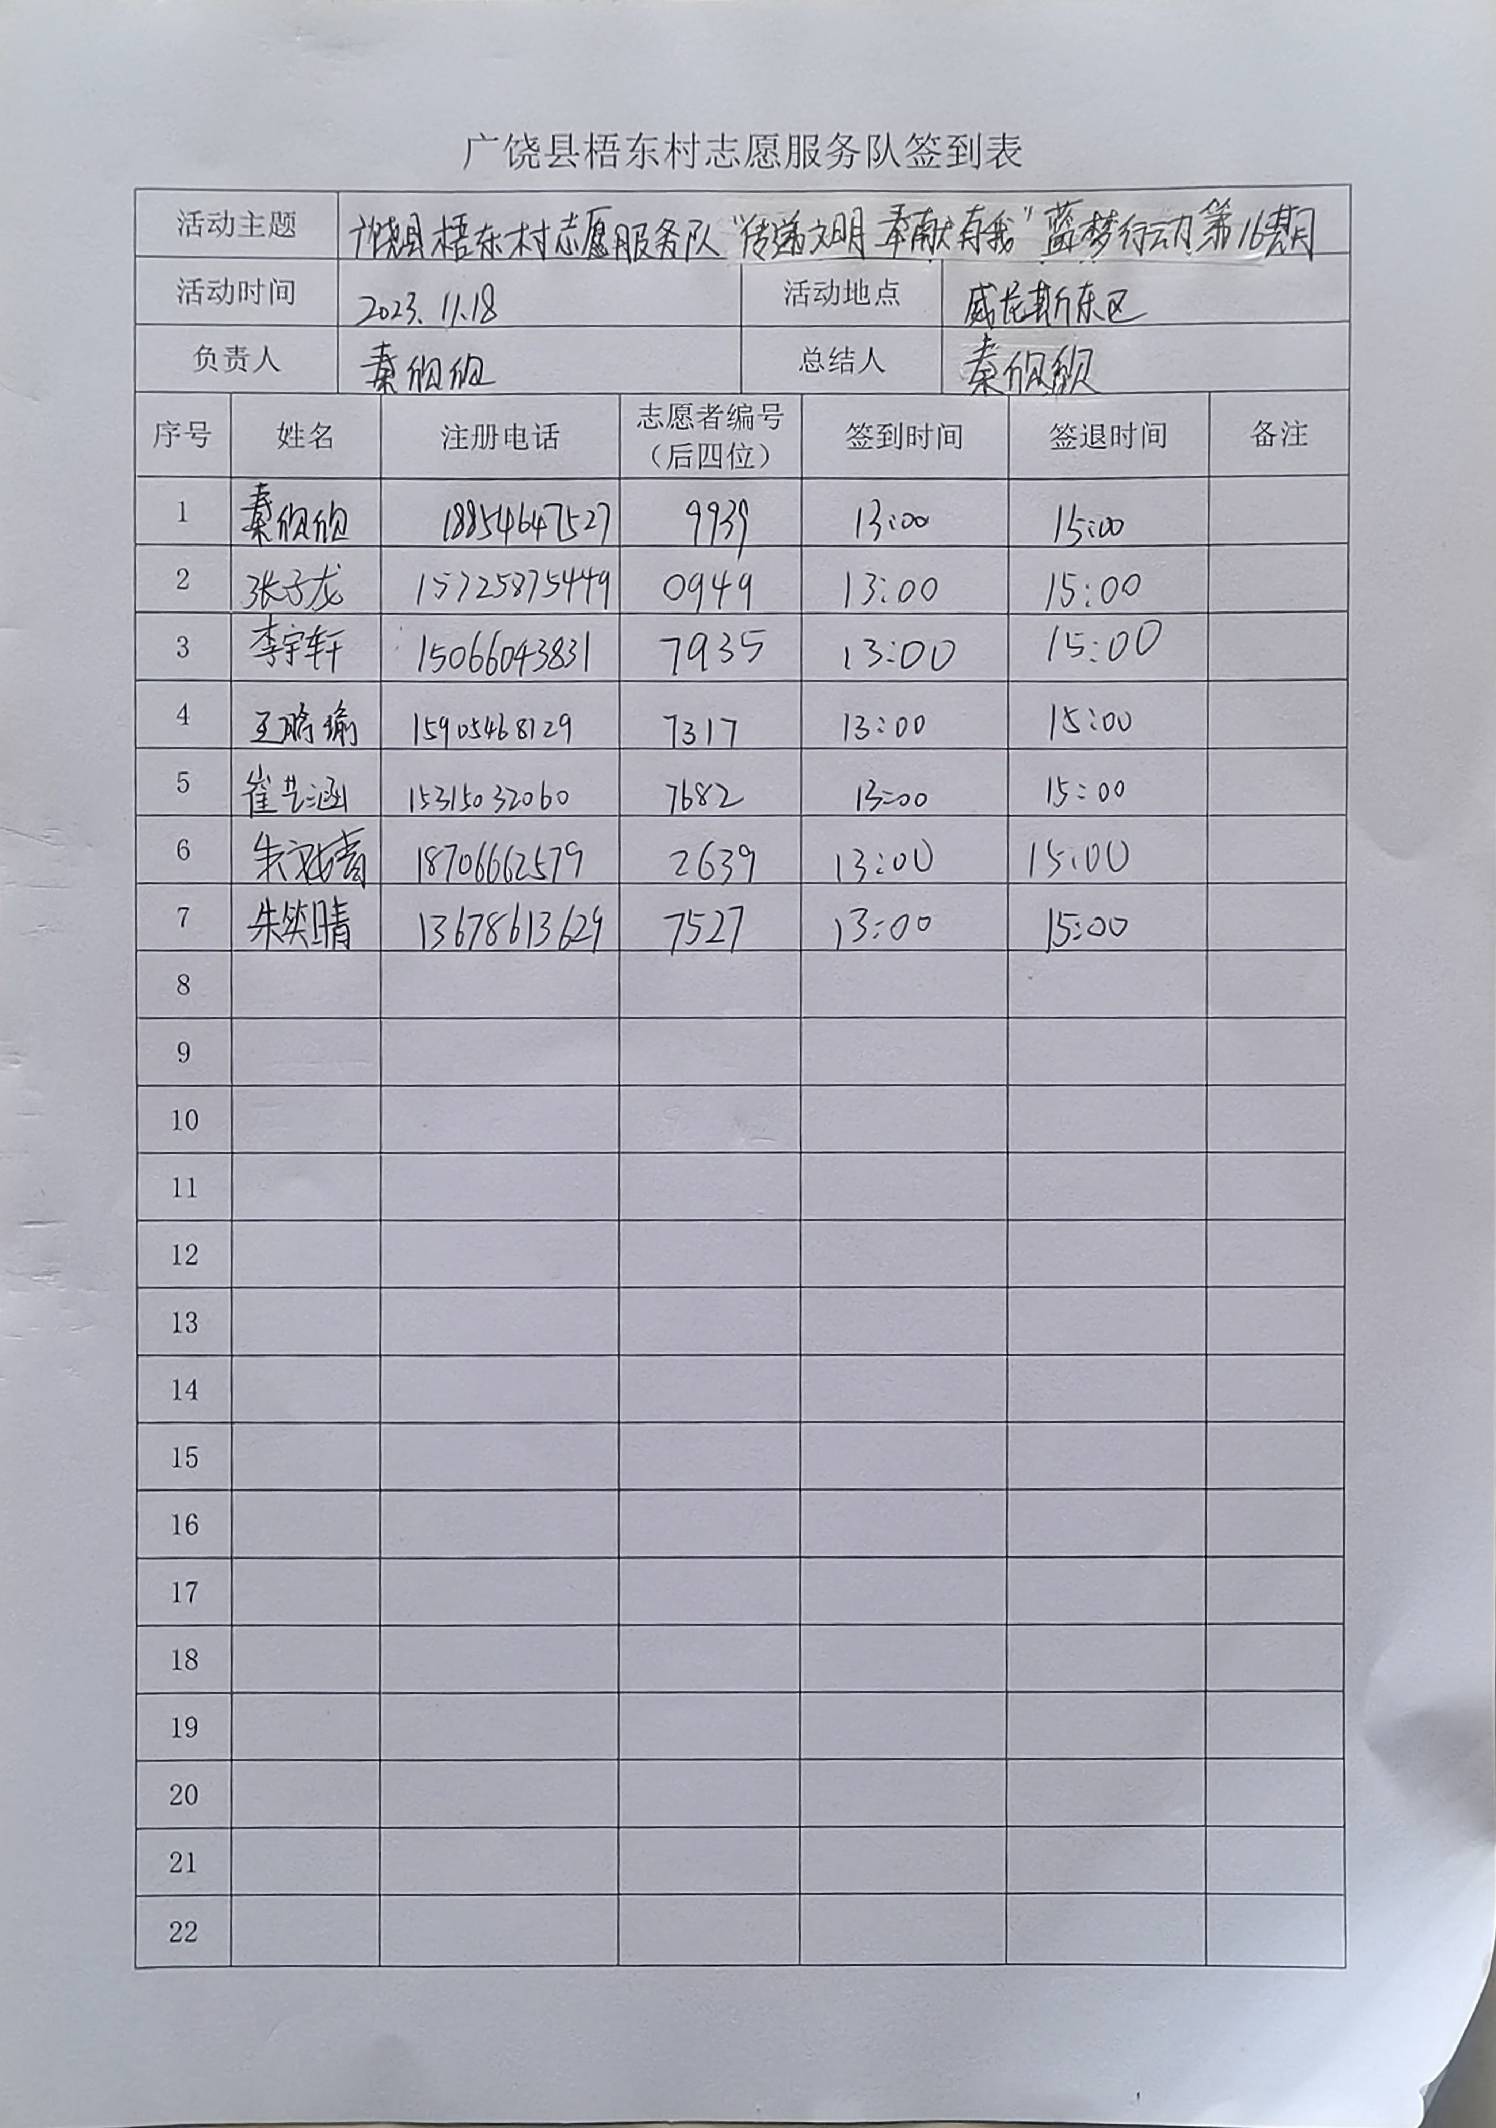 广饶县梧东村志愿服务队签到表
活动主题 广饶县梧东村志愿服务队“传递文明 奉献有我”蓝梦行动第16期
活动时间 2023.11.18 活动地点 威尼斯东区
负责人 秦欣欣 总结人 秦欣颖
序号 姓名 注册电话 志愿者编号（后四位） 签到时间 签退时间 备注
1 秦欣欣 18854647527 9939 13:00 15:00
2 张子龙 15725875449 0949 13:00 15:00
3 李宇轩 15066043831 7935 13:00 15:00
4 王鹏瑜 15905468129 7317 13:00 15:00
5 崔艺涵 15315032060 7682 13:00 15:00
6 朱 18706662579 2639 13:00 15:00
7 朱笑晴 13678613629 7527 13:00 15:00
8
9
10
11
12
13
14
15
16
17
18
19
20
21
22